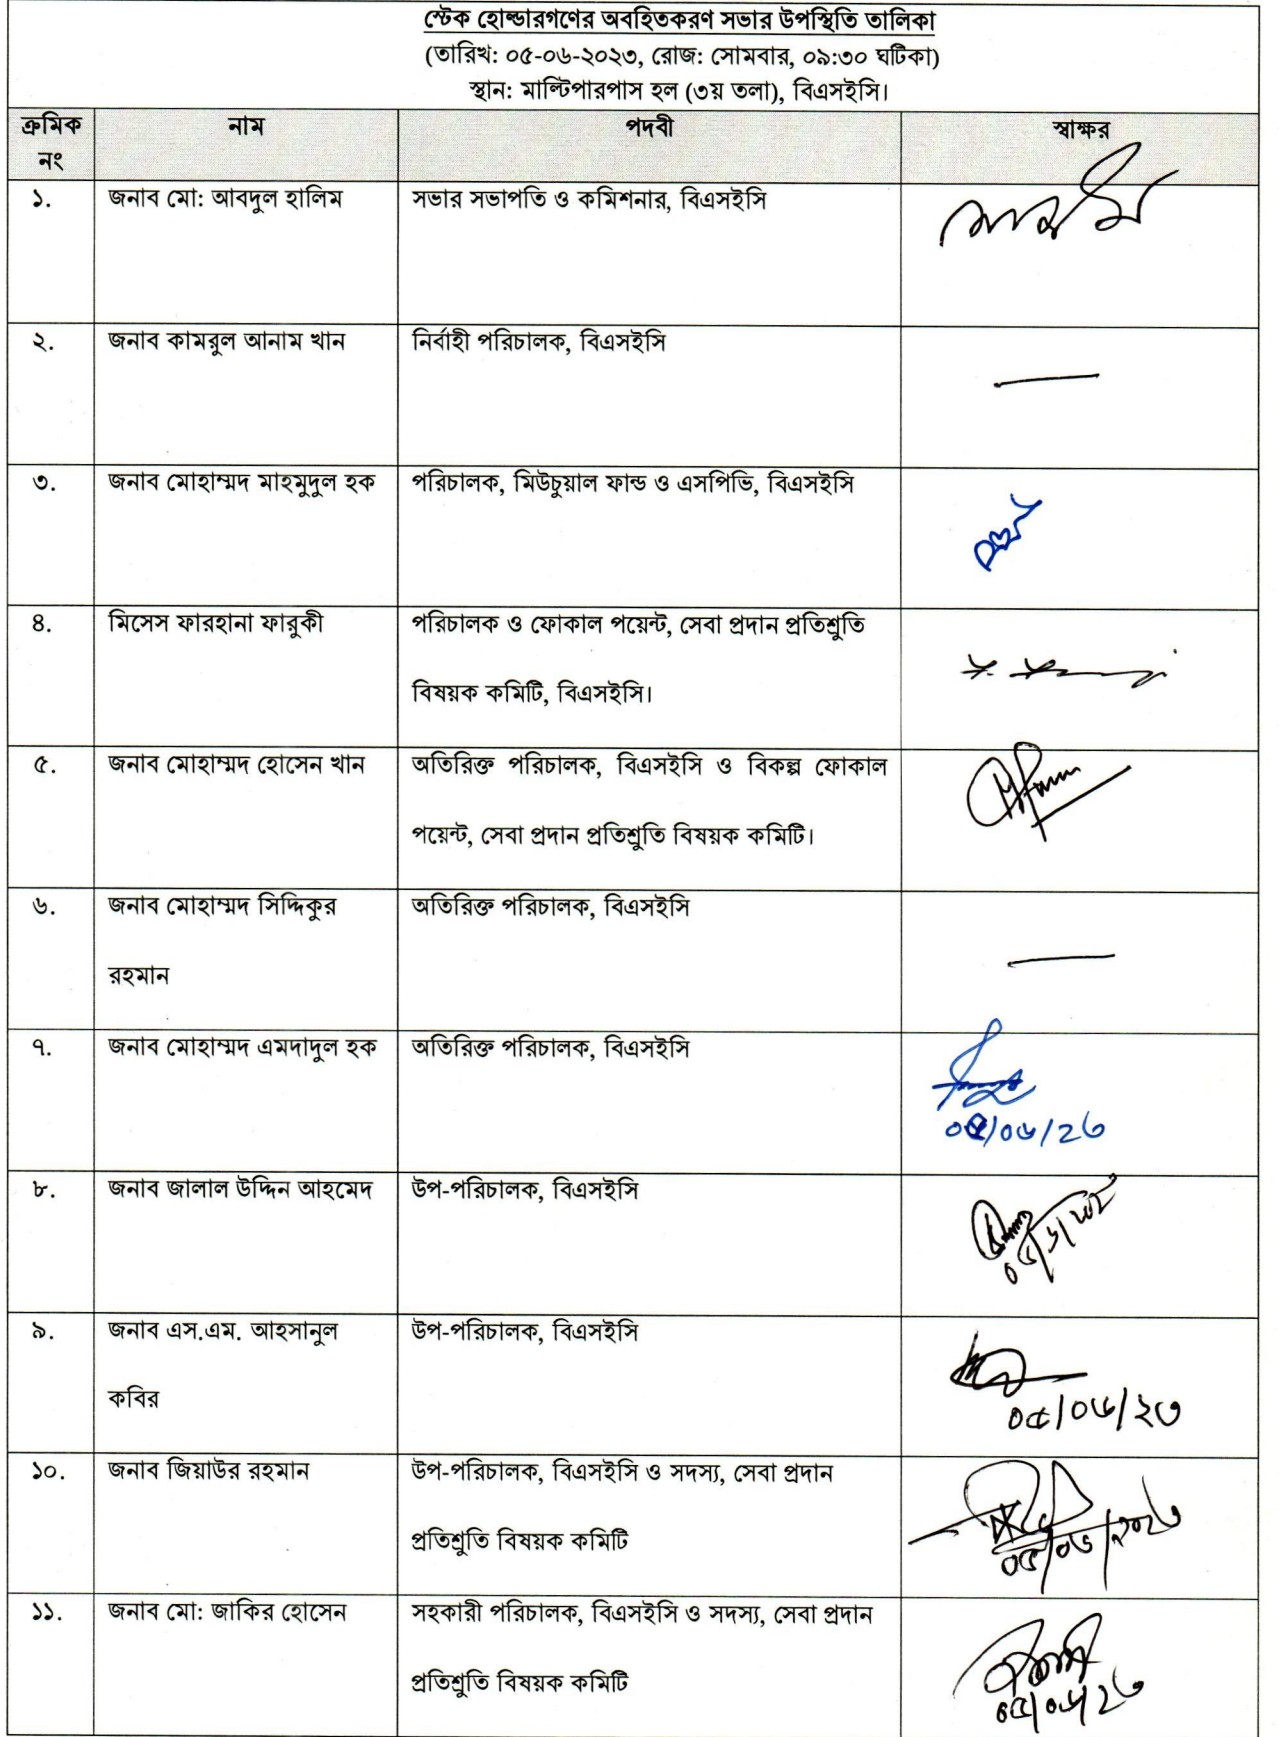 স্টেক হোল্ডারগণের অবহিতকরণ সভার উপস্থিতি তালিকা
(তারিখ: ০৫-০৬-২০২৩, রোজ: সোমবার, ০৯:৩০ ঘটিকা)
স্থান: মাল্টিপারপাস হল (৩য় তলা), বিএসইসি।
ক্রমিক নং নাম পদবী স্বাক্ষর
১. জনাব মো: আবদুল হালিম সভার সভাপতি ও কমিশনার, বিএসইসি
২. জনাব কামরুল আনাম খান নির্বাহী পরিচালক, বিএসইসি
৩. জনাব মোহাম্মদ মাহমুদুল হক পরিচালক, মিউচুয়াল ফান্ড ও এসপিভি, বিএসইসি
৪. মিসেস ফারহানা ফারুকী পরিচালক ও ফোকাল পয়েন্ট, সেবা প্রদান প্রতিশ্রুতি
বিষয়ক কমিটি, বিএসইসি।
৫. জনাব মোহাম্মদ হোসেন খান অতিরিক্ত পরিচালক, বিএসইসি ও বিকল্প ফোকাল
পয়েন্ট, সেবা প্রদান প্রতিশ্রুতি বিষয়ক কমিটি।
৬. জনাব মোহাম্মদ সিদ্দিকুর অতিরিক্ত পরিচালক, বিএসইসি
রহমান
৭. জনাব মোহাম্মদ এমদাদুল হক অতিরিক্ত পরিচালক, বিএসইসি
০৫/০৬/২৩
৮. জনাব জালাল উদ্দিন আহমেদ উপ-পরিচালক, বিএসইসি
৯. জনাব এস.এম. আহসানুল উপ-পরিচালক, বিএসইসি
কবির
০৫/০৬/২৩
১০. জনাব জিয়াউর রহমান উপ-পরিচালক, বিএসইসি ও সদস্য, সেবা প্রদান
প্রতিশ্রুতি বিষয়ক কমিটি
০৫/০৬/২০২৩
১১. জনাব মো: জাকির হোসেন সহকারী পরিচালক, বিএসইসি ও সদস্য, সেবা প্রদান
প্রতিশ্রুতি বিষয়ক কমিটি
০৫/০৬/২৩